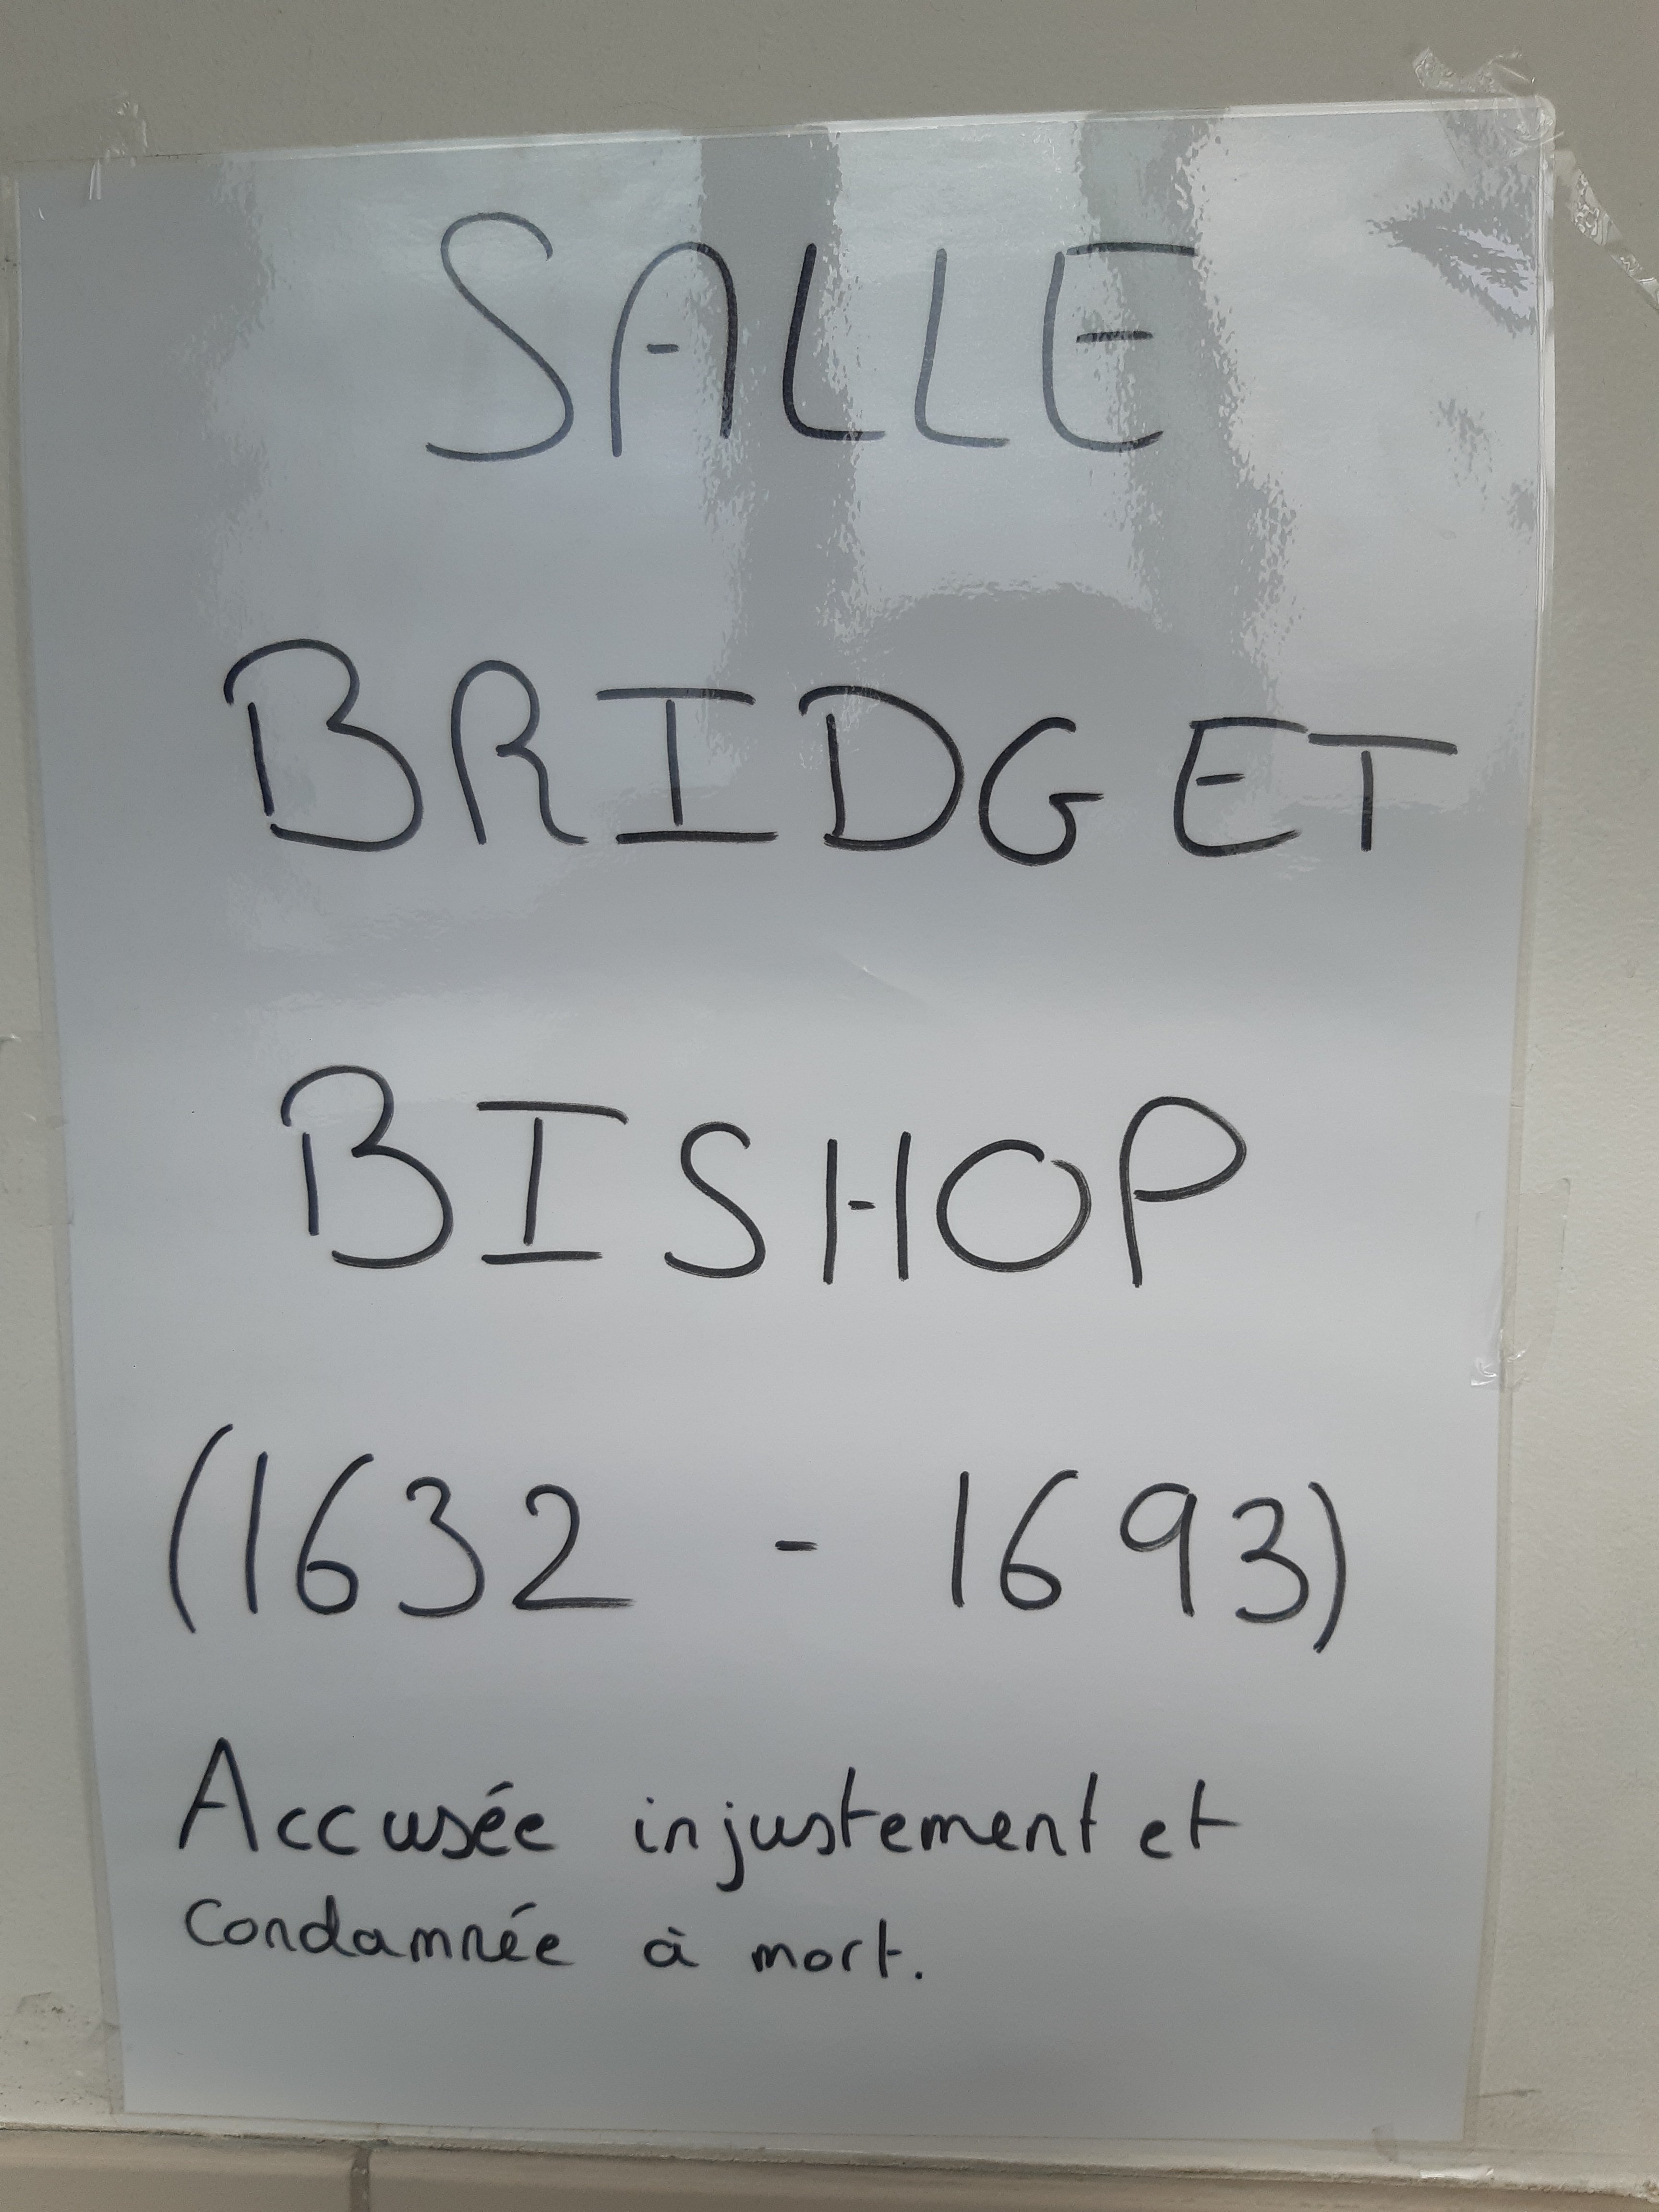 SALLE
BRIDGET
BISHOP
(1632 - 1693)
Accusée injustement et
condamnée à mort.